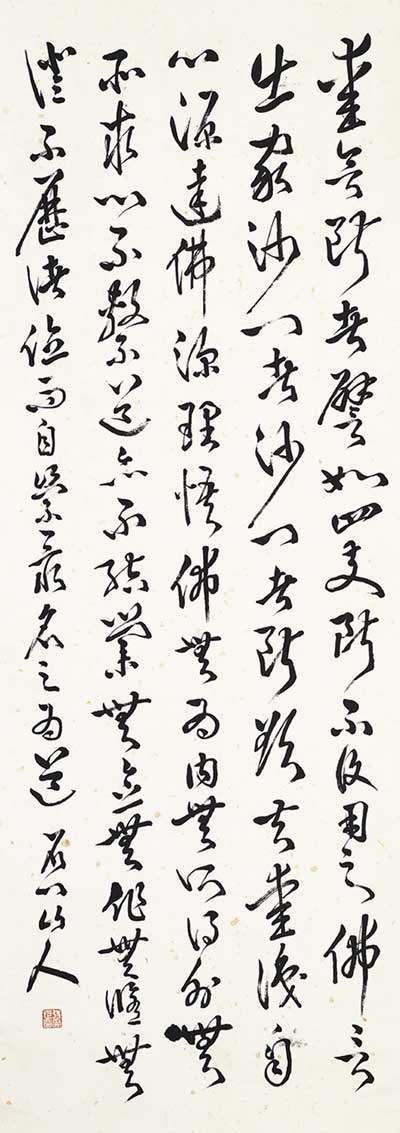 愛欲斷者譬如四支斷不復用之佛言
出家沙門者沙門者斷欲去愛識自
心源達佛深理悟佛無為內無所得外無
所求心不繫道亦不結業無念無作無修無
證不歷諸位而自崇最名之為道 石門山人